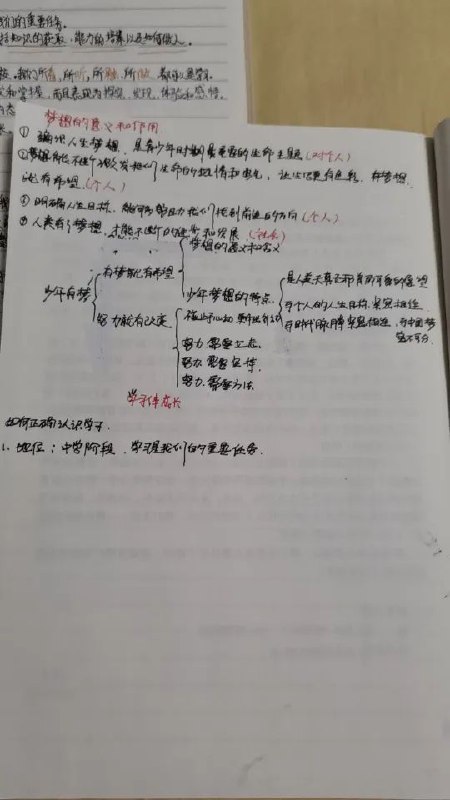 们的重要任务。
括知识的获取、能力的培养以及如何做人。
我们所看，所听，所触，所做，都可以是学习。
和掌握，而且表现为探究、发现、体验和感悟。
梦想的意义和作用
① 编织人生梦想，是青少年时期重要的生命主题（对个人）
②梦想能不断激发我们生命的热情和勇气，让生活更有色彩，有梦想，
就有希望（个人）
③ 明确人生目标，能够帮助我们找到前进的方向（个人）
④ 人类有了梦想，才能不断的进步和发展（社会）
梦想的意义和含义
有梦就有希望
少年有梦
少年梦想的特点
是人类天真无邪最美好的愿望
与个人的人生目标紧密相连
与时代脉搏紧密相连，与中国梦
密不可分
努力就有改变
努力，需要立志
努力，需要坚持，
努力，需要方法
学习伴成长
如何正确认识学习
1. 地位：中学阶段，学习是我们的重要任务